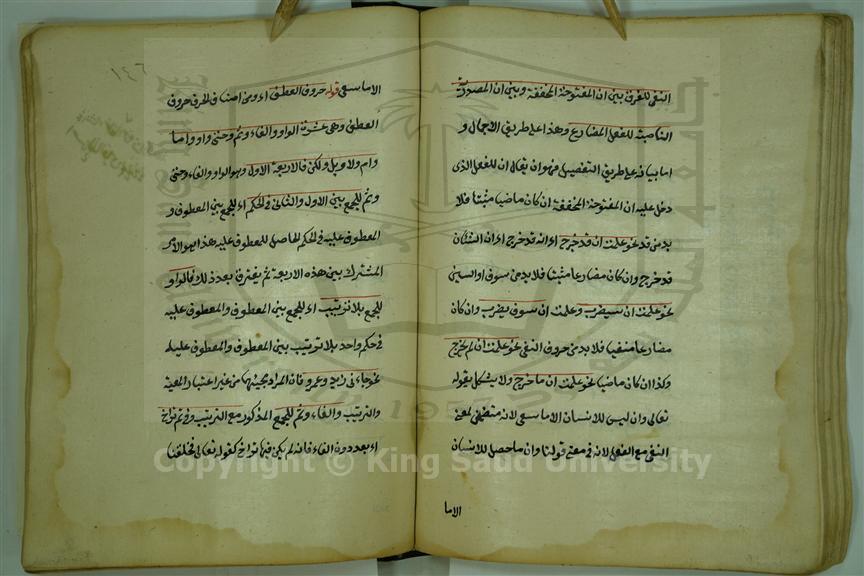 النفى للفرق بين ان المفتوحة المخففة وبين ان المصدرية
الناصبة للفعل المضارع وهذا على طريق الاجمال و
اما بيانه على طريق التفصيل فهو ان يقال ان للفعل الذى
دخل عليه ان المفتوحة المخففة ان كان ماضيا مثبتا فلا
بد من قد نحو علمت ان قد خرج اى انه قد خرج اى ان الشان
قد خرج وان كان مضارعا مثبتا فلا بد من سوف او السين
نحو علمت ان سيضرب وعلمت ان سوف يضرب وان كان
مضارعا منفيا فلا بد من حروف النفى نحو علمت ان لم يخرج
وكذا ان كان ماضيا نحو علمت ان ما خرج ولا يشكل بقوله
تعالى وان ليس للانسان الا ما سعى لانه متضمن لمعنى
النفى مع الفعل لانه فى معنى قولنا وان ما حصل للانسان
الاما
١٤٦
الا ما سعى قوله حروف العطف اى ومن اصناف الحرف حروف
العطف وهى عشرة الواو والفاء وثم وحتى واو واما
وام ولا وبل ولكن فالاربعة الاول وهو الواو والفاء وحتى
وثم للجمع بين الاول والثانى فى الحكم اى للجمع بين المعطوف و
المعطوف عليه فى الحكم الحاصل للمعطوف عليه هذا هو الامر
المشترك بين هذه الاربعة ثم يفترق بعد ذلك فالواو
للجمع بلا ترتيب اى للجمع بين المعطوف والمعطوف عليه
فى حكم واحد بلا ترتيب بين المعطوف والمعطوف عليه
نحو جاءنى زيد وعمرو فان المراد مجيئهما من غير اعتبار المعية
والترتيب والفاء وثم للجمع المذكور مع الترتيب وفى ثم تراخ
اى بعد دون الفاء فانه لم يكن فيها تراخ كقوله تعالى فخلقنا
Copyright © King Saud University
1957